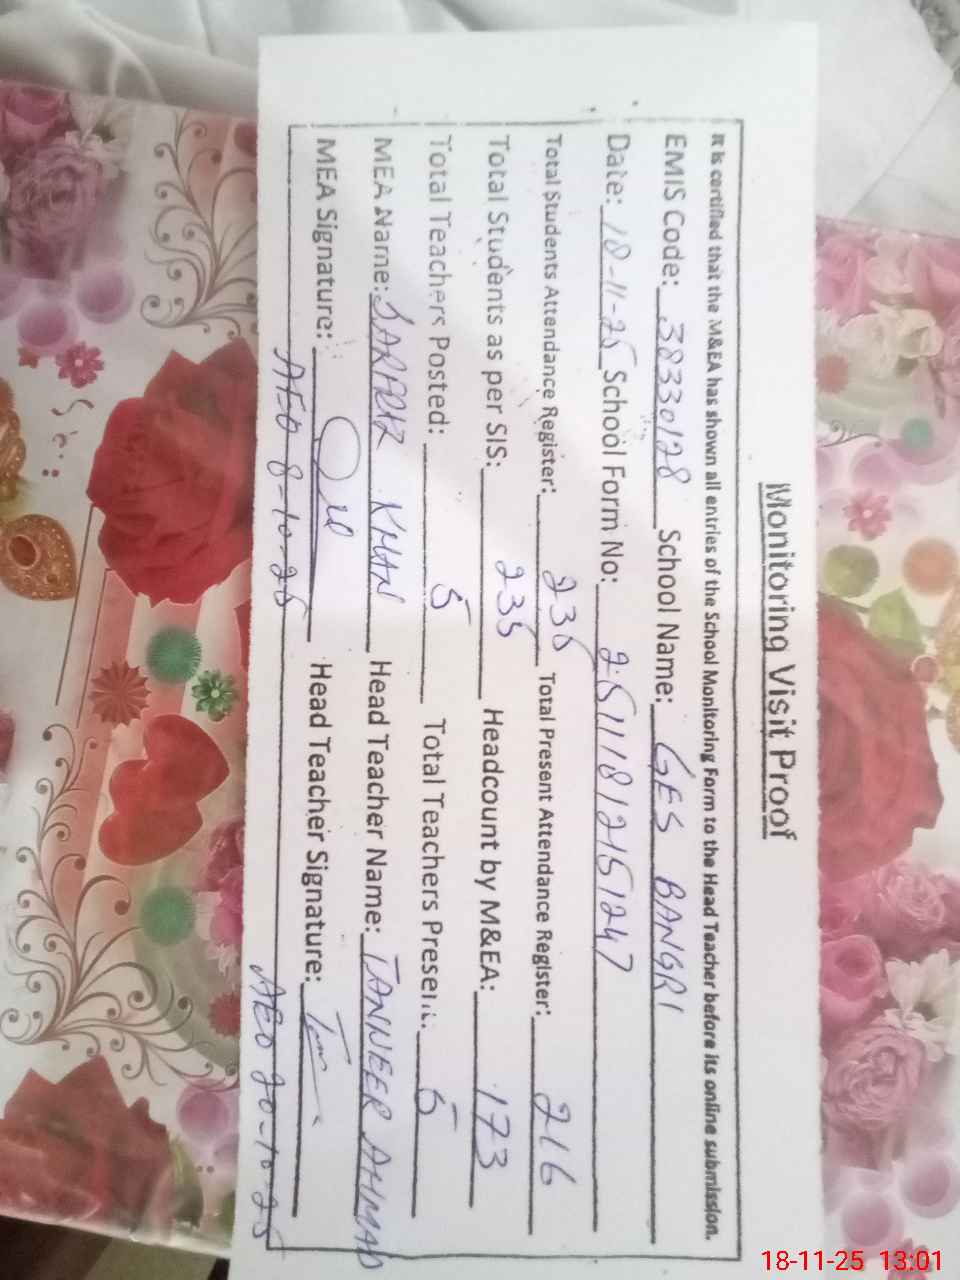 Monitoring Visit Proof
It is certified that the M&EA has shown all entries of the School Monitoring Form to the Head Teacher before its online submission.
EMIS Code: 38330128 School Name: GES BANGRI
Date: 18-11-25 School Form No: 25111812151247
Total Students Attendance Register: 236 Total Present Attendance Register: 216
Total Students as per SIS: 235 Headcount by M&EA: 173
Total Teachers Posted: 5 Total Teachers Present: 5
MEA Name: KHAN Head Teacher Name: TANVEER AHMAD
MEA Signature: Head Teacher Signature:
AEO 8-10-25 AEO 20-10-25
18-11-25 13:01